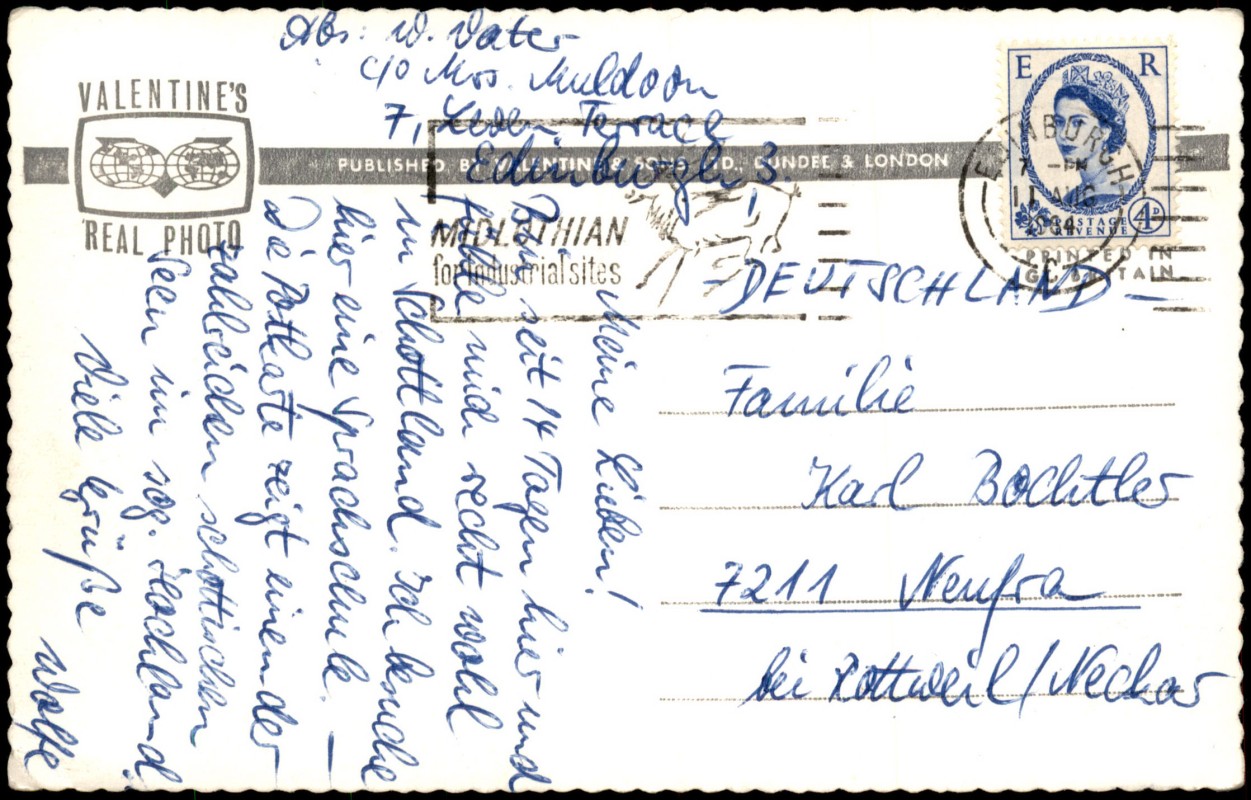 Abs: W. Vater
c/o Mrs. Muldoon
7, Leven Terrace
Edinburgh 3.
VALENTINE'S
REAL PHOTO
PUBLISHED BY VALENTINE & SONS, LTD., DUNDEE & LONDON
MIDLOTHIAN
for industrial sites
E R
POSTAGE
REVENUE
4D
EDINBURGH
7 - PM
11 AUG
1964
PRINTED IN
GT. BRITAIN
- DEUTSCHLAND -
Familie
Karl Bochtler
7211 Neufra
bei Rottweil/Neckar
Meine Lieben!
Bin seit 14 Tagen hier und
fühle mich recht wohl
in Schottland. Ich besuche
hier eine Sprachschule. —
Die Postkarte zeigt einen der
zahlreichen schottischen
Seen im sog. Hochland.
Viele Grüße
Wolfe